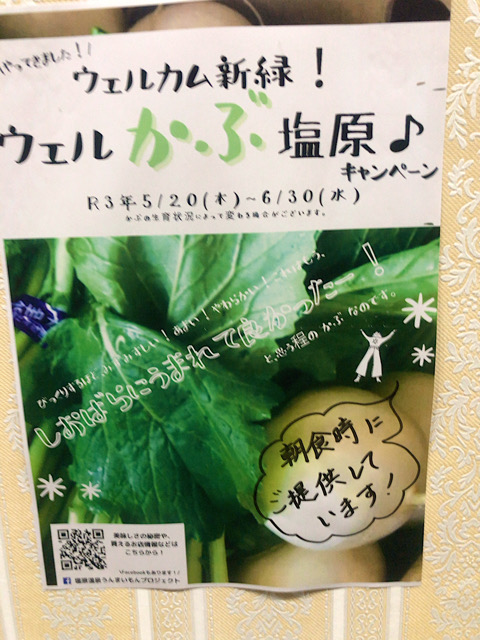 やってきました！！
ウェルカム新緑！
ウェルかぶ塩原♪
キャンペーン
R3年5/20(木)～6/30(水)
かぶの生育状況によって変わる場合がございます。
びっくりするほど、みずみずしい！あまい！やわらかい！これはもう、
しおばらにうまれて良かったー！
と、思う程のかぶなのです。
朝食時に
ご提供して
います！
美味しさの秘密や、
買えるお店情報などは
こちらから！
\Facebookもあります！/
塩原温泉うんまいもんプロジェクト